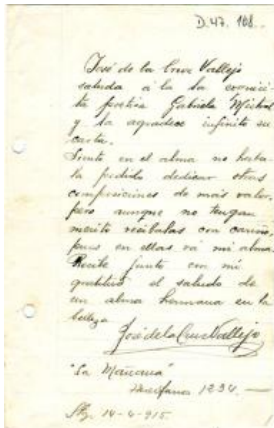 D.47. 108.
José de la Cruz Vallejo
saluda a la
poetisa Gabriela Mistral
y la agradece infinito su
carta.
Siento en el alma no haber
podido dedicar otras
composiciones de más valor,
pero aunque no tengan
mérito recíbalas con cariño,
pues en ellas vá mi alma.
Recibe junto con mi
gratitud el saludo de
un alma hermana en la
belleza
José de la Cruz Vallejo
"La Mañana"
1234.—
14-4-915.